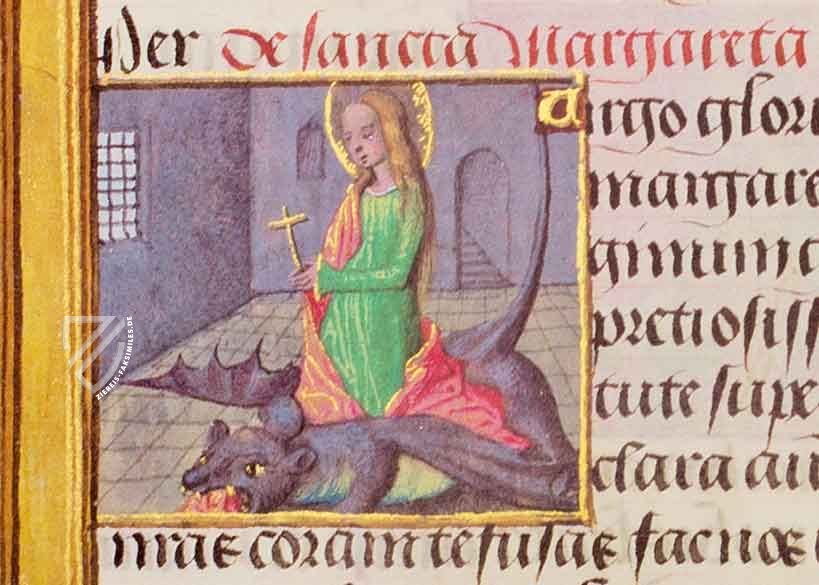 Per De sancta Margareta
Virgo glori
margare
ginum c
pretiosiss
tute supe
clara au
nras coram te fusas fac nos
ZIEREIS-FAKSIMILES.DE